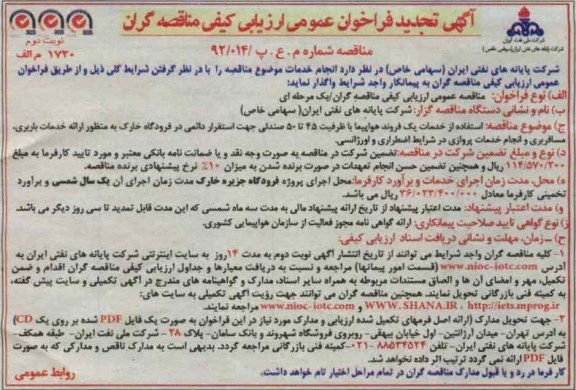 آگهی تجدید فراخوان عمومی ارزیابی کیفی مناقصه گران
شرکت ملی نفت ایران
شرکت پایانه های نفتی ایران (سهامی خاص)
نوبت دوم
۱۷۳۰ م الف
مناقصه شماره م . ع . پ /۹۲/۰۱۴
شرکت پایانه های نفتی ایران (سهامی خاص) در نظر دارد انجام خدمات موضوع مناقصه را با در نظر گرفتن شرایط کلی ذیل و از طریق فراخوان
عمومی ارزیابی کیفی مناقصه گران به پیمانکار واجد شرایط واگذار نماید:
الف) نوع فراخوان: مناقصه عمومی ارزیابی کیفی مناقصه گران/یک مرحله ای
ب) نام و نشانی دستگاه مناقصه گزار: شرکت پایانه های نفتی ایران( سهامی خاص)
ج) موضوع مناقصه: استفاده از خدمات یک فروند هواپیما با ظرفیت ۴۵ تا ۵۰ صندلی جهت استقرار دائمی در فرودگاه خارک به منظور ارائه خدمات باربری،
مسافربری و انجام خدمات پروازی در شرایط اضطراری و اورژانسی.
د) نوع و مبلغ تضمین شرکت در مناقصه: تضمین شرکت در مناقصه به صورت وجه نقد و یا ضمانت نامه بانکی معتبر و مورد تایید کارفرما به مبلغ
۱۱۴/۵۷۰/۲۰۰ ریال و همچنین تضمین حسن انجام تعهدات در صورت برنده شدن به میزان ۱۰٪ نرخ پیشنهادی برنده مناقصه.
ه) محل، مدت زمان اجرای خدمات و برآورد کارفرما: محل اجرای پروژه فرودگاه جزیره خارک مدت زمان اجرای آن یک سال شمسی و برآورد
تخمینی کارفرما معادل ۲۶/۰۲۳/۴۰۰/۰۰۰ ریال می باشد.
و) مدت اعتبار پیشنهاد: مدت اعتبار پیشنهاد از تاریخ ارائه پیشنهاد مالی به مدت سه ماه شمسی که این مدت قابل تمدید تا سی روز دیگر می باشد.
ز) نوع گواهی تایید صلاحیت پیمانکاری: ارائه گواهی نامه مجوز فعالیت از سازمان هواپیمایی کشوری.
ح) سازمان، مهلت و نشانی دریافت اسناد ارزیابی کیفی:
۱- کلیه مناقصه گران واجد شرایط می توانند از تاریخ انتشار آگهی نوبت دوم به مدت ۱۴روز به سایت اینترنتی شرکت پایانه های نفتی ایران به
آدرس www.nioc-iotc.com (قسمت امور پیمانها) مراجعه و نسبت به دریافت معیارها و جداول ارزیابی کیفی مناقصه گران اقدام و ضمن
تکمیل، مهر و امضای آن ها و الصاق مستندات مربوطه به همراه سایر اسناد، مدارک و گواهینامه های مندرج در آگهی تکمیلی و سایت پیش گفته،
به کمیته فنی بازرگانی تحویل نمایند. همچنین مناقصه گران می توانند جهت رؤیت آگهی تکمیلی به سایت های:
http://iets.mprog.ir ، WWW.SHANA.IR و www.nioc-iotc.com مراجعه نمایند.
۲- جهت تحویل مدارک (ارائه اصل فرمهای تکمیل شده ارزیابی و مدارک مورد نیاز در این فراخوان به صورت یک فایل PDF شده بر روی یک CD)
به آدرس تهران- میدان آرژانتین- اول خیابان بیهقی- روبروی فروشگاه شهروند و بانک سامان- پلاک ۲۸ - شرکت ملی نفت ایران- طبقه همکف-
شرکت پایانه های نفتی ایران- تلفن ۸۸۵۳۴۵۲۴ -۰۲۱ کمیته فنی بازرگانی مراجعه گردد. بدیهی است به مدارک ناقص و مدارکی که به صورت
فایل PDF ارائه نمی گردد ترتیب اثر داده نخواهد شد.
کارفرما در رد و یا قبول مدارک مناقصه گران در تمام مراحل اختیار تام خواهد داشت.
روابط عمومی